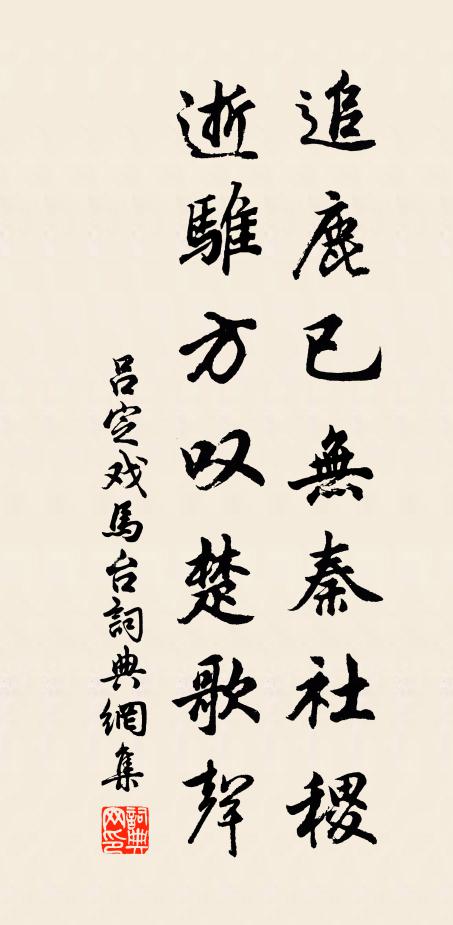 追鹿已無秦社稷
逝騅方叹楚歌聲
吕定戏馬台詞典網集
詞典網印